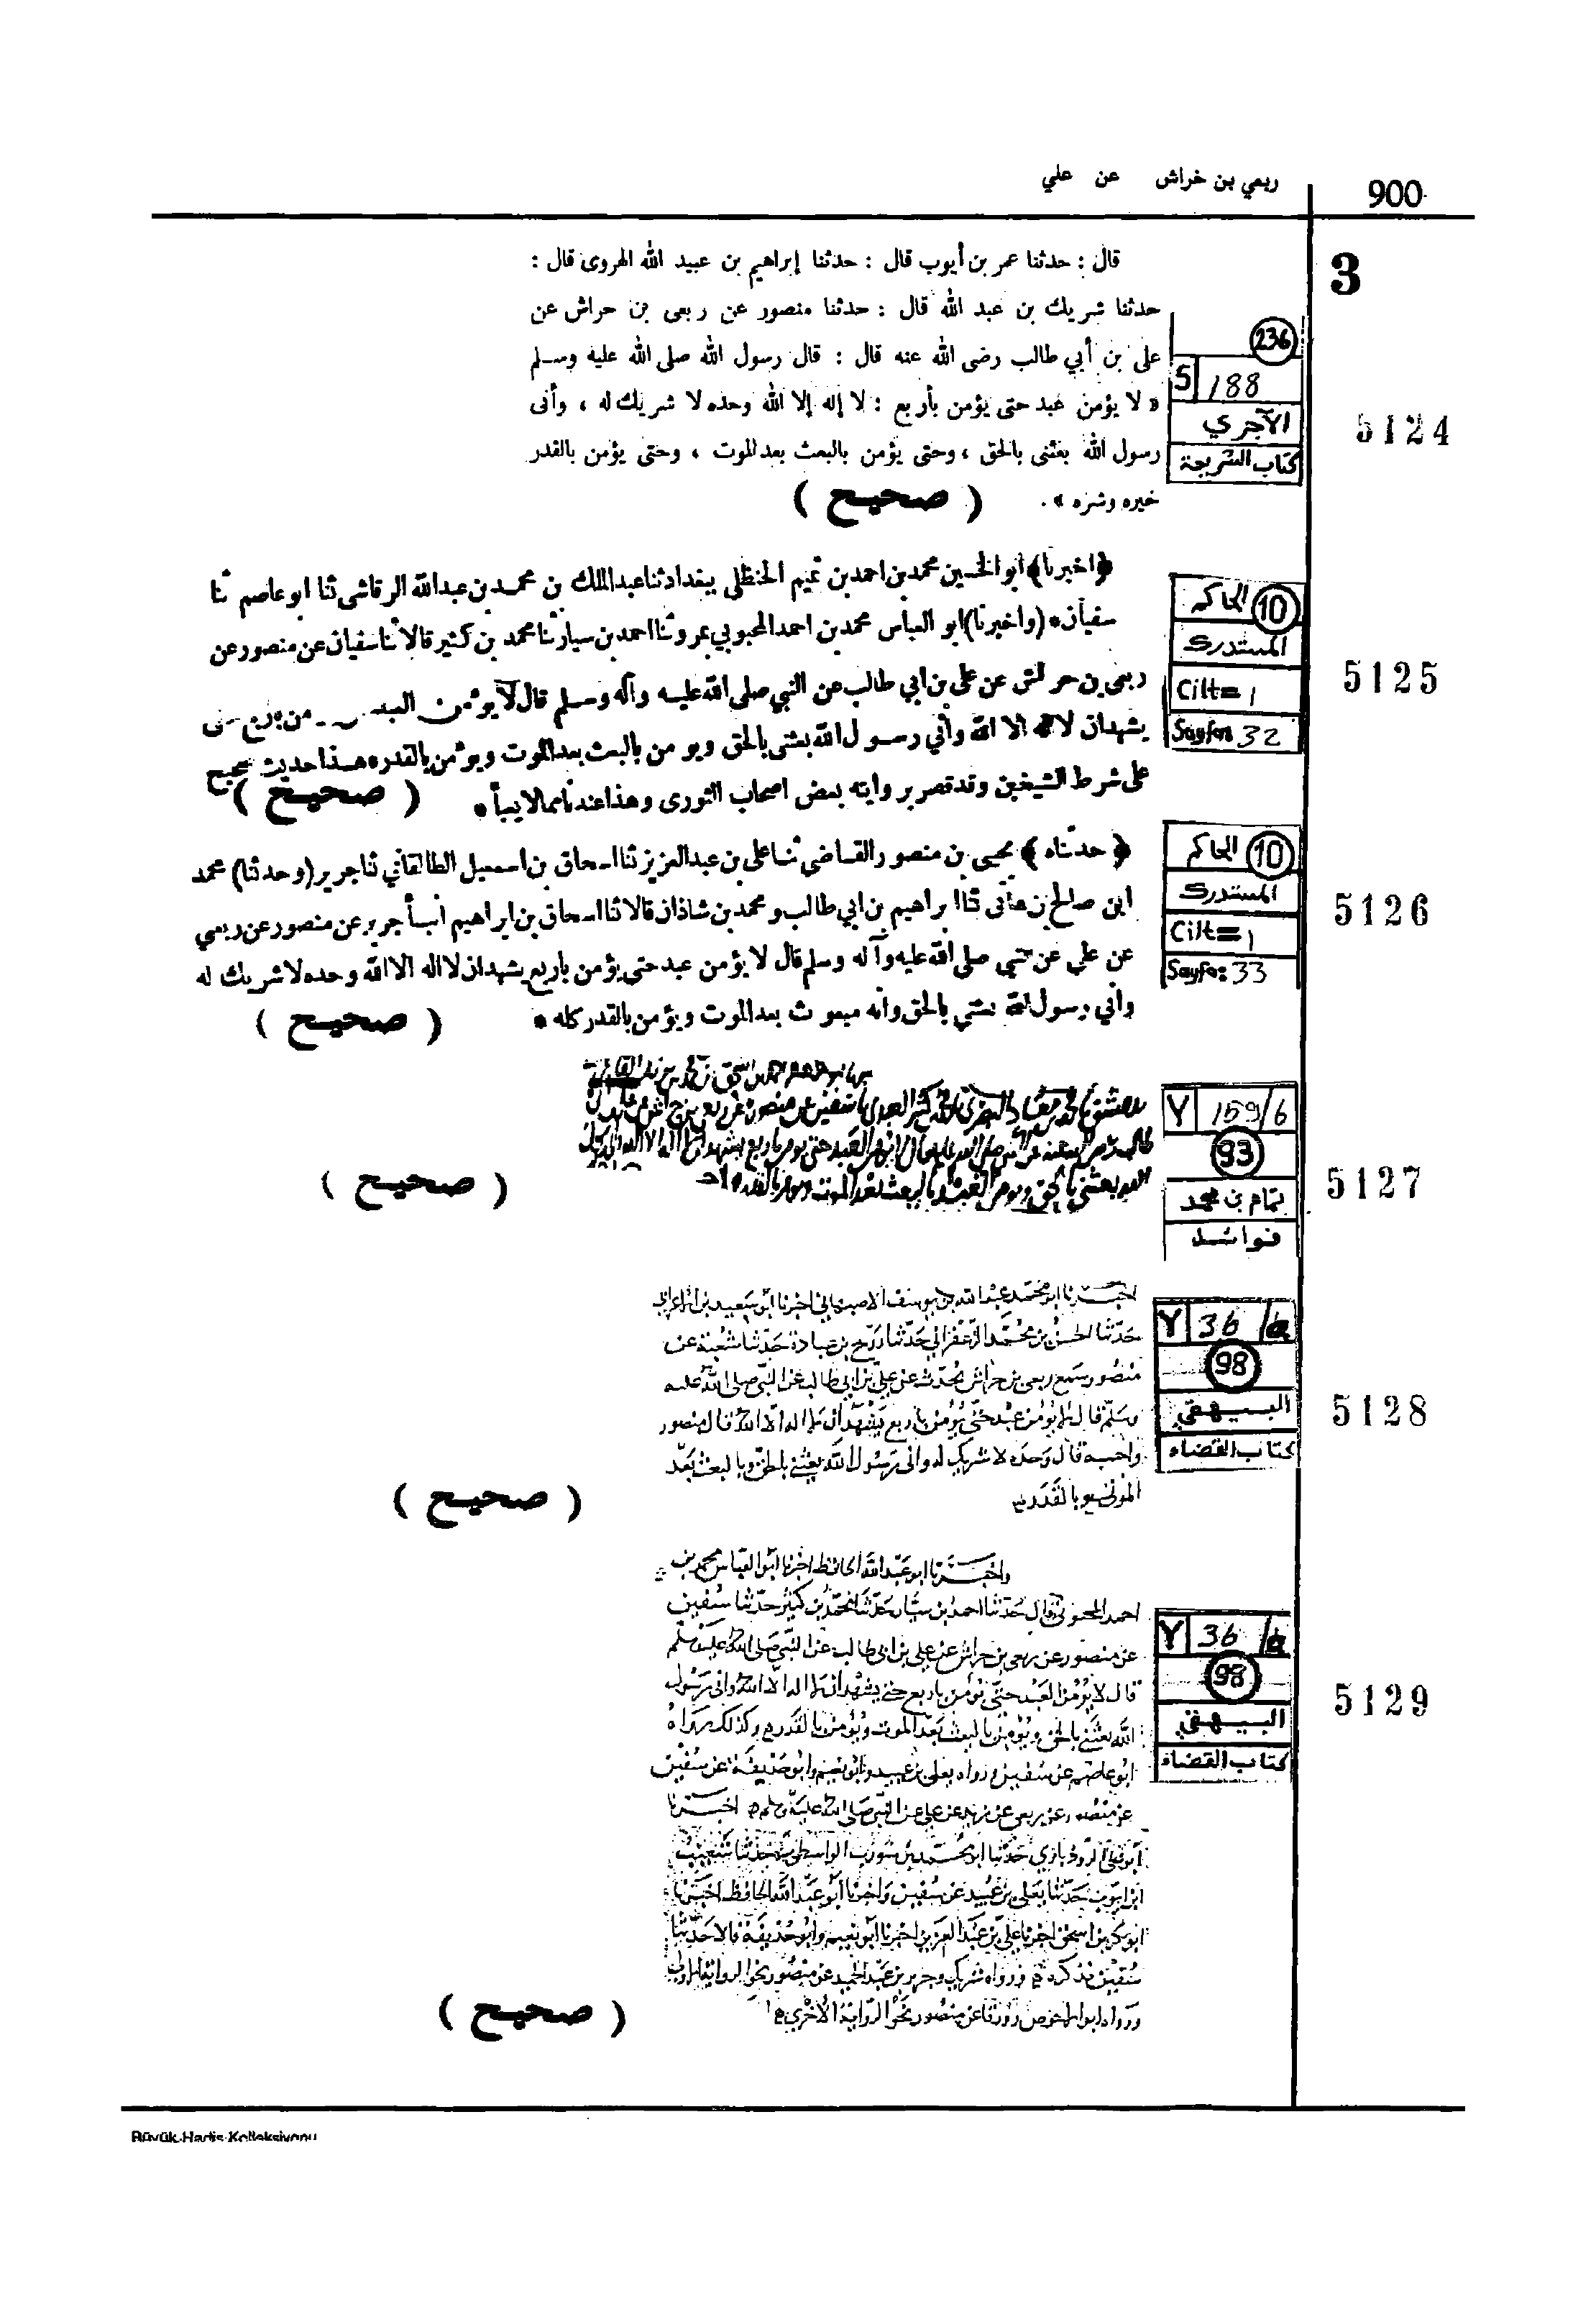 900
ربعي بن خراش عن علي
3
قال : حدثنا عمر بن أيوب قال : حدثنا إبراهيم بن عبيد الله الهروى قال :
حدثنا شريك بن عبد الله قال : حدثنا منصور عن ربعى بن حراش عن
على بن أبي طالب رضى الله عنه قال : قال رسول الله صلى الله عليه وسلم
« لا يؤمن عبد حتى يؤمن بأربع : لا إله إلا الله وحده لا شريك له ، وأنى
رسول الله بعثنى بالحق ، وحتى يؤمن بالبعث بعد الموت ، وحتى يؤمن بالقدر
خيره وشره » .
( صحيح )
236
S 188
الآجري
كتاب الشريعة
5124
﴿اخبرنا﴾ ابو الحسين محمد بن احمد بن تميم الحنظلى ببغداد ثنا عبد الملك بن محمد بن عبد الله الرقاشى ثنا ابو عاصم ثنا
سفيان * (واخبرنا) ابو العباس محمد بن احمد المحبوبي بمرو ثنا احمد بن سيار ثنا محمد بن كثير قالا ثنا سفيان عن منصور عن
ربعى بن حراش عن على بن ابي طالب عن النبي صلى الله عليه وآله وسلم قال لا يؤمن العبد
يشهد ان لا اله الا الله وأني رسول الله بعثنى بالحق ويومن بالبعث بعد الموت ويؤمن بالقدر * هذا حديث صحيح
على شرط الشيخين وقد قصر بروايته بعض اصحاب الثورى وهذا عندنا مما لا يعبأ *
( صحيح )
10 الحاكم
المستدرك
Cilt= 1
Sayfa: 32
5125
﴿ حدثناه ﴾ يحيى بن منصور القاضي ثنا على بن عبد العزيز ثنا اسحاق بن اسمعيل الطالقاني ثنا جرير (وحدثنا) محمد
ابن صالح بن هانى ثنا ابراهيم بن ابي طالب و محمد بن شاذان قالا ثنا اسحاق بن ابراهيم انبأ جرير عن منصور عن ربعي
عن علي عن صلى الله عليه وآله وسلم قال لا يؤمن عبد حتى يؤمن باربع يشهد ان لا اله الا الله وحده لا شريك له
وأني رسول الله بعثني بالحق وانه مبعوث بعد الموت ويؤمن بالقدر كله *
( صحيح )
10 الحاكم
المستدرك
Cilt= 1
Sayfa: 33
5126
( صحيح )
Y 159/b
93
تمام بن محمد
فوائد
5127
اخبرنا ابو محمد عبد الله بن يوسف الاصبهاني اخبرنا ابو سعيد بن الاعرابي
حدثنا الحسن بن محمد الزعفراني حدثنا روح بن عبادة حدثنا شعبة عن
منصور سمع ربعي بن حراش يحدث عن علي بن ابي طالب عن النبي صلى الله عليه
وسلم قال لا يؤمن عبد حتى يؤمن باربع يشهد ان لا اله الا الله قال منصور
واحسبه قال وحده لا شريك له واني رسول الله بعثني بالحق وبالبعث بعد
الموت وبالقدر
( صحيح )
Y 36 /a
98
البيهقي
كتاب القضاء
5128
واخبرنا ابو عبد الله الحافظ اخبرنا ابو العباس محمد بن
احمد المحبوبي قال حدثنا احمد بن سيار حدثنا محمد بن كثير حدثنا سفين
عن منصور عن ربعي بن حراش عن علي بن ابي طالب عن النبي صلى الله عليه وسلم
قال لا يؤمن العبد حتى يؤمن باربع حتى يشهد ان لا اله الا الله واني رسول
الله بعثني بالحق ويؤمن بالبعث بعد الموت ويؤمن بالقدر وكذلك رواه
ابو عاصم عن سفين ورواه يعلى بن عبيد وابو نعيم وابو حذيفة عن سفين
عن منصور عن ربعي عن رجل عن علي عن النبي صلى الله عليه وسلم اخبرنا
ابو علي الروذباري حدثنا ابو محمد بن شوذب الواسطي حدثنا شعيب
ابن ايوب حدثنا يعلى بن عبيد عن سفين واخبرنا ابو عبد الله الحافظ اخبرنا
ابو بكر بن اسحق اخبرنا علي بن عبد العزيز اخبرنا ابو نعيم وابو حذيفة قالا حدثنا
سفين فذكره ورواه شريك وجرير بن عبد الحميد عن منصور نحو الرواية الاولى
ورواه ابو الاحوص وورقا عن منصور نحو الرواية الاخرى
( صحيح )
Y 36 /a
98
البيهقي
كتاب القضاء
5129
Büyük Hadis Kolleksiyonu